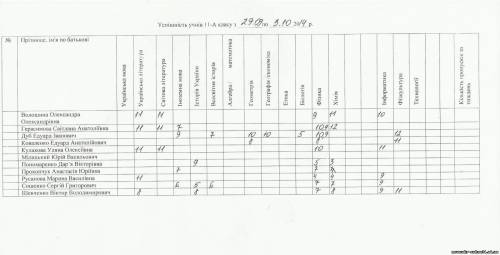 Успішність учнів 11-А класу з 29.09 по 3.10 2014 р.
№ Прізвище, ім'я по батькові Українська мова Українська література Світова література Іноземна мова Історія України Всесвітня історія Алгебра / математика Геометрія Географія економічна Етика Біологія Фізика Хімія Інформатика Фізкультура Технології Кількість пропусків та
Волошина Олександра Олександрівна 11 11 9 11 10
Герасимова Світлана Анатоліївна 11 11 7 12
Дуб Едуард Іванович 9 7 10 10 5 12
Коваленко Едуард Анатолійович 8 8 11
Кулакова Уляна Олексіївна 11 11 10 11
Мілацький Юрій Васильович
Пономаренко Дар'я Вікторівна 9 5 3
Прокопчук Анастасія Юріївна 7 7
Русанова Марина Василівна 11 4 4 9
Сошенко Сергій Григорович 6 5 6 7 7 9
Шевченко Віктор Володимирович 8 8 7 8 9 11